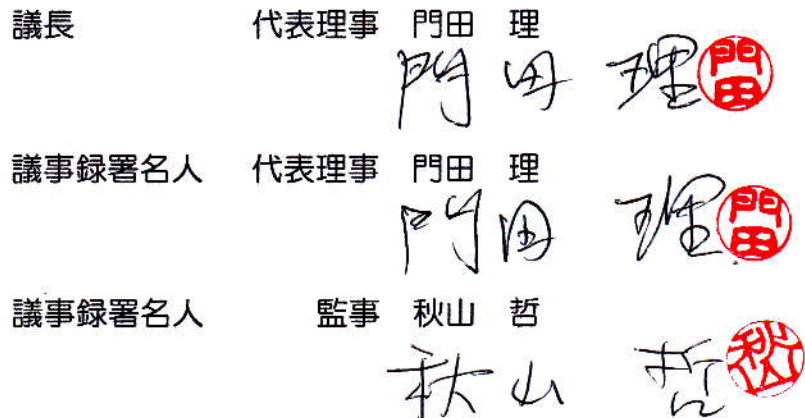 議長 代表理事 門田 理
門田 理 門田
議事録署名人 代表理事 門田 理
門田 理 門田
議事録署名人 監事 秋山 哲
秋山 哲 秋山